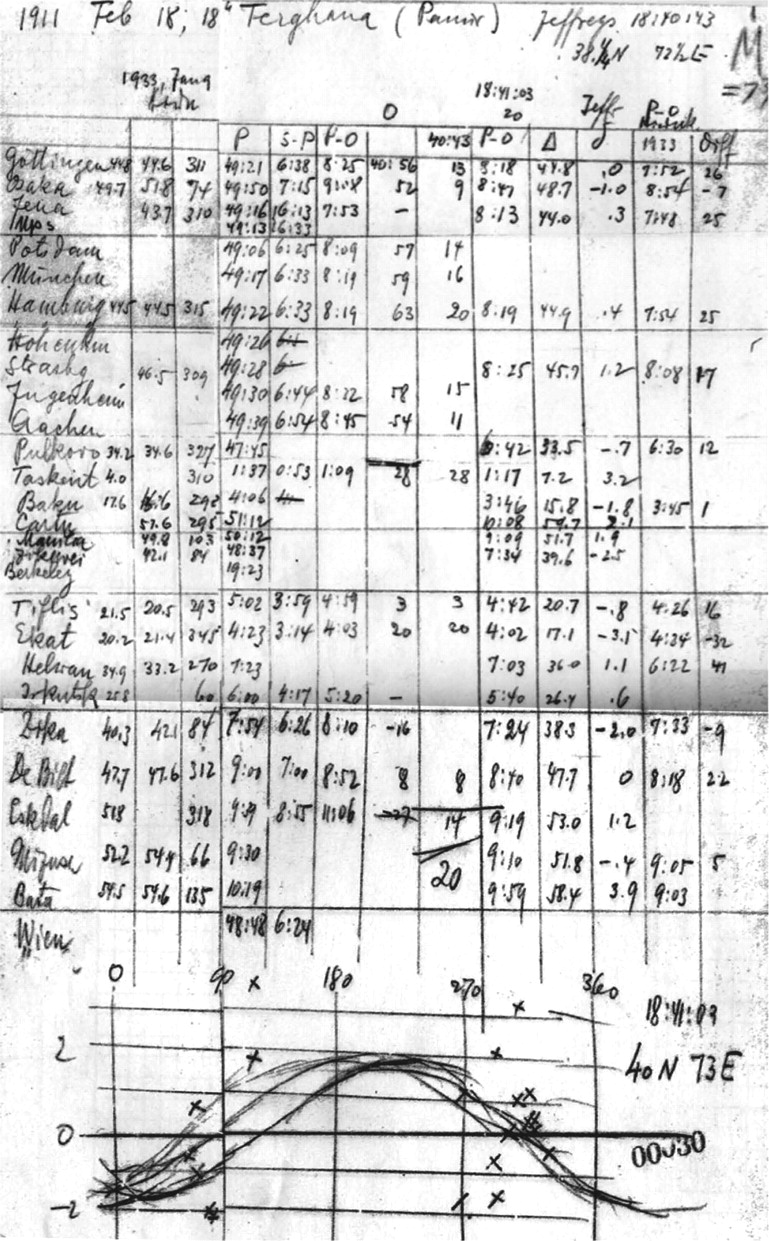 1911 Feb 18, 18h Ferghana (Pamir) Jeffreys 18:40:43
38¼N 72½E M
=7
1933, Jena
O 18:41:03 Jeff P-O
20
P S-P P-O 40:43 P-O Δ 1933 Diff
Göttingen 44.8 44.6 311 49:21 6:38 8:25 40:56 13 8:18 44.8 .0 7:52 26
Osaka 49.7 51.8 74 49:50 7:15 9:08 52 9 8:47 48.7 -1.0 8:54 -7
Jena 43.7 310 49:16 16:13 7:53 – 8:13 44.0 .3 7:48 25
49:13 6:33
Potsdam 49:06 6:25 8:09 57 14
München 49:17 6:33 8:19 59 16
Hamburg 44.5 44.5 315 49:22 6:33 8:19 63 20 8:19 44.9 .4 7:54 25
Hohenhm 49:26
Strasbg 46.5 309 49:28 8:25 45.7 1.2 8:08 17
Jugenheim 49:30 6:44 8:22 58 15
Aachen 49:39 6:54 8:45 54 11
Pulkovo 34.2 34.6 327 47:45 6:42 33.5 -.7 6:30 12
Taskent 4.0 310 1:37 0:53 1:09 28 28 1:17 7.2 3.2
Baku 17.6 16.6 292 4:06 3:46 15.8 -1.8 3:45 1
57.6 295 51:12 10:08 59.7 2.1
Manila 49.8 103 50:12 9:09 51.7 1.9
Zikawei 42.1 84 48:37 7:34 39.6 -2.5
Berkeley 19:23
Tiflis 21.5 20.5 293 5:02 3:59 4:59 3 3 4:42 20.7 -.8 4:26 16
Ekat 20.2 21.4 345 4:23 3:14 4:03 20 20 4:02 17.1 -3.1 4:34 -32
Helwan 34.9 33.2 270 7:23 7:03 36.0 1.1 6:22 41
Irkutsk 25.8 60 6:00 4:17 5:20 – 5:40 26.4 .6
Zika 40.3 42.1 84 7:54 6:26 8:10 -16 7:24 38.3 -2.0 7:33 -9
De Bilt 47.7 47.6 312 9:00 7:00 8:52 8 8 8:40 47.7 0 8:18 22
Eskdal 51.8 318 9:39 8:55 11:06 -27 14 9:19 53.0 1.2
Mizusa 52.2 54.4 66 9:30 20 9:10 51.8 -.4 9:05 5
Bata 54.5 54.6 135 10:19 9:59 58.4 3.9 9:03
Wien 48:48 6:24
0 90 180 270 360
18:41:03
2 40N 73E
0 00030
-2